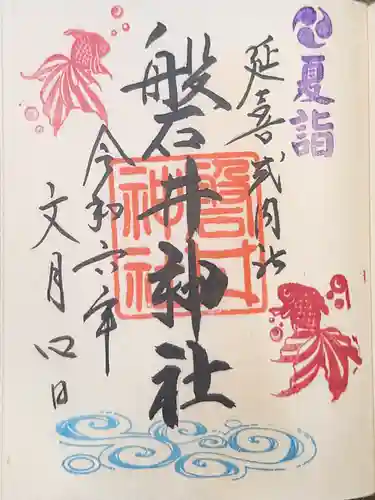 夏詣
延喜式内社
磐井神社
令和六年
文月四日
磐井神社